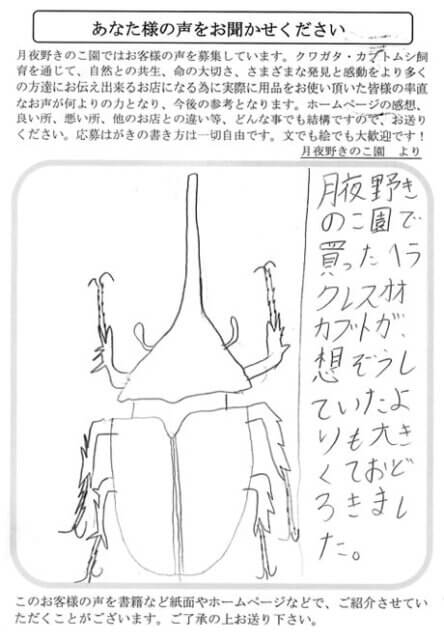 あなた様の声をお聞かせください
月夜野きのこ園ではお客様の声を募集しています。クワガタ・カブトムシ飼
育を通じて、自然との共生、命の大切さ、さまざまな発見と感動をより多く
の方達にお伝え出来るお店になる為に実際に用品をお使い頂いた皆様の率直
なお声が何よりの力となり、今後の参考となります。ホームページの感想、
良い所、悪い所、他のお店との違い等、どんな事でも結構ですので、お送り
ください。応募はがきの書き方は一切自由です。文でも絵でも大歓迎です！
月夜野きのこ園　より
月夜野き
のこ園で
買ったヘラ
クレスオオ
カブトが、
想ぞうし
ていたよ
りも大き
くておど
ろきまし
た。
このお客様の声を書籍など紙面やホームページなどで、ご紹介させていた
だくことがございます。ご了承の上お送り下さい。